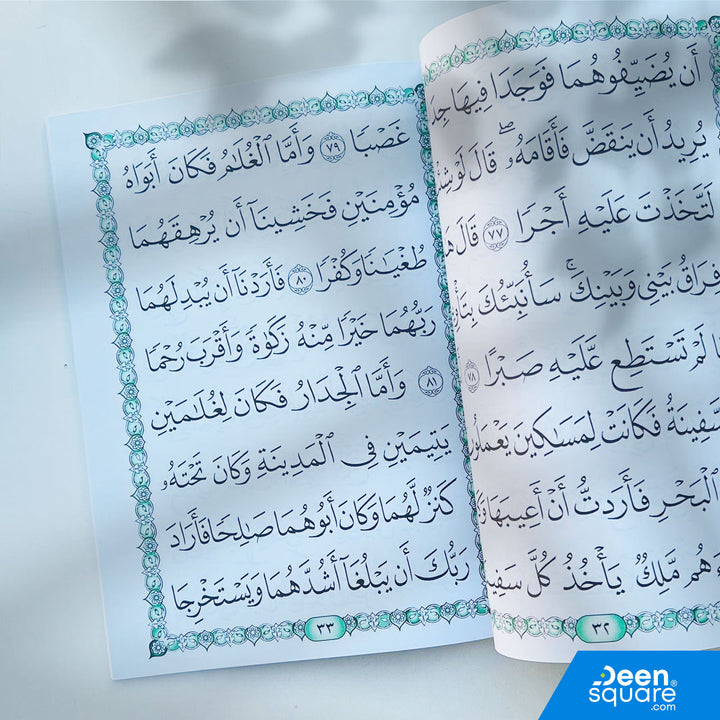 أَن يُضَيِّفُوهُمَا فَوَجَدَا فِيهَا
يُرِيدُ أَن يَنقَضَّ فَأَقَامَهُۥۖ قَالَ لَوْ
لَتَّخَذْتَ عَلَيْهِ أَجْرًا ٧٧ قَالَ
فِرَاقُ بَيْنِي وَبَيْنِكَۚ سَأُنَبِّئُكَ
لَمْ تَسْتَطِع عَّلَيْهِ صَبْرًا ٧٨
سَفِينَةُ فَكَانَتْ لِمَسَٰكِينَ
ٱلْبَحْرِ فَأَرَدتُّ أَنْ أَعِيبَهَا
مَّلِكٌ يَأْخُذُ كُلَّ
٣٢
غَصْبًا ٧٩ وَأَمَّا ٱلْغُلَٰمُ فَكَانَ أَبَوَاهُ
مُؤْمِنَيْنِ فَخَشِينَآ أَن يُرْهِقَهُمَا
طُغْيَٰنًا وَكُفْرًا ٨٠ فَأَرَدْنَآ أَن يُبْدِلَهُمَا
رَبُّهُمَا خَيْرًا مِّنْهُ زَكَوٰةً وَأَقْرَبَ رُحْمًا
٨١ وَأَمَّا ٱلْجِدَارُ فَكَانَ لِغُلَٰمَيْنِ
يَتِيمَيْنِ فِي ٱلْمَدِينَةِ وَكَانَ تَحْتَهُۥ
كَنزٌ لَّهُمَا وَكَانَ أَبُوهُمَا صَٰلِحًا فَأَرَادَ
رَبُّكَ أَن يَبْلُغَآ أَشُدَّهُمَا وَيَسْتَخْرِجَا
٣٣
Deen
square®
.com